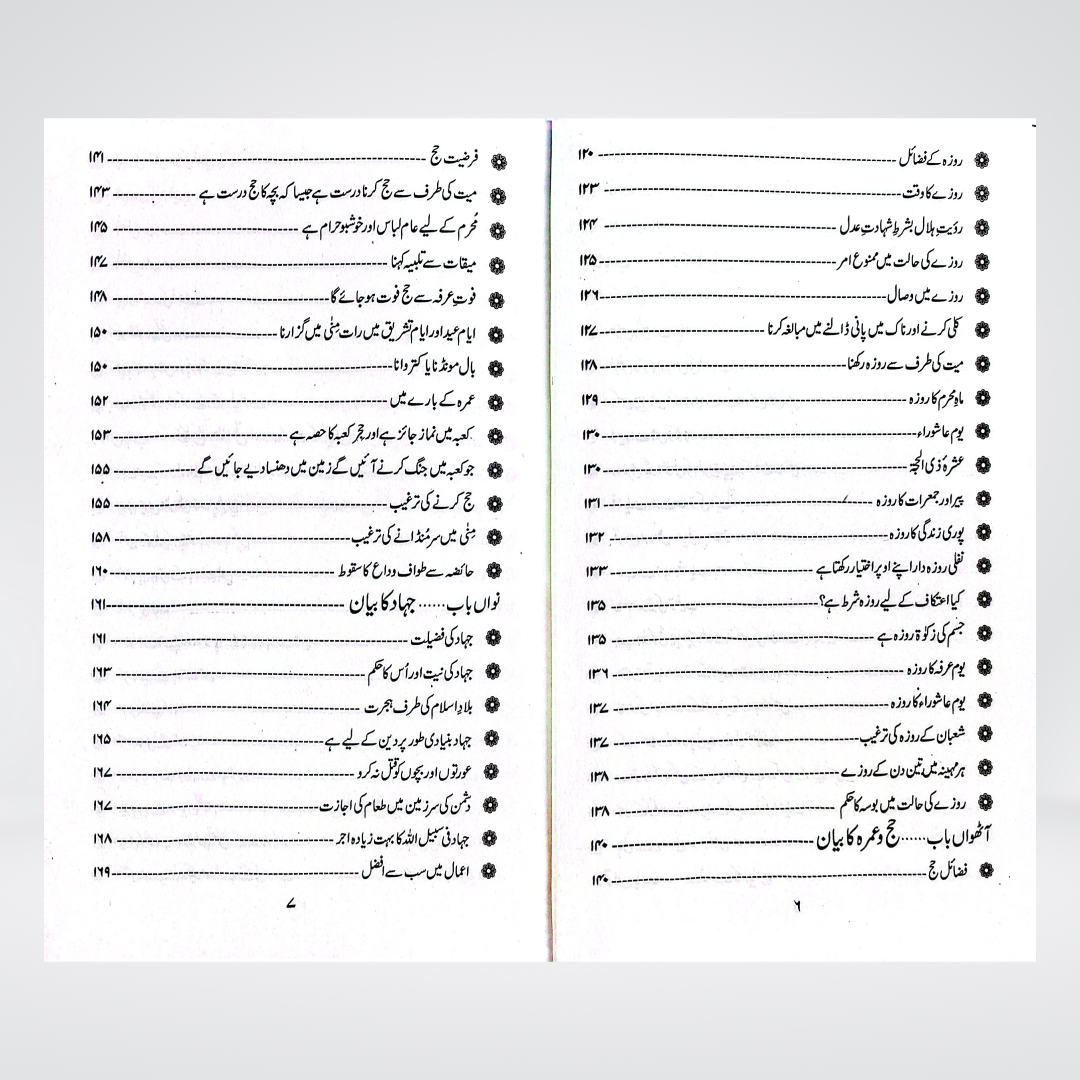 روزہ کے فضائل ۱۲۰
روزے کا وقت ۱۲۳
رؤیتِ ہلال بشرطِ شہادتِ عدل ۱۲۴
روزے کی حالت میں ممنوع امر ۱۲۵
روزے میں وصال ۱۲۶
کلی کرنے اور ناک میں پانی ڈالنے میں مبالغہ کرنا ۱۲۷
میت کی طرف سے روزہ رکھنا ۱۲۸
ماہِ محرم کا روزہ ۱۲۹
یوم عاشوراء ۱۳۰
عشرۂ ذی الحجۃ ۱۳۰
پیر اور جمعرات کا روزہ ۱۳۱
پوری زندگی کا روزہ ۱۳۲
نفلی روزہ دار اپنے اوپر اختیار رکھتا ہے ۱۳۳
کیا اعتکاف کے لیے روزہ شرط ہے؟ ۱۳۵
جسم کی زکوٰۃ روزہ ہے ۱۳۵
یوم عرفہ کا روزہ ۱۳۶
یوم عاشوراء کا روزہ ۱۳۷
شعبان کے روزہ کی ترغیب ۱۳۷
ہر مہینہ میں تین دن کے روزے ۱۳۸
روزے کی حالت میں بوسہ کا حکم ۱۳۸
آٹھواں باب...... حج و عمرہ کا بیان ۱۴۰
فضائل حج ۱۴۰
۶
فرضیت حج ۱۴۱
میت کی طرف سے حج کرنا درست ہے جیسا کہ بچہ کا حج درست ہے ۱۴۳
مُحرم کے لیے عام لباس اور خوشبو حرام ہے ۱۴۵
میقات سے تلبیہ کہنا ۱۴۷
فوتِ عرفہ سے حج فوت ہو جائے گا ۱۴۸
ایام عید اور ایام تشریق میں رات مِنٰی میں گزارنا ۱۵۰
بال مونڈنا یا کتروانا ۱۵۰
عمرہ کے بارے میں ۱۵۲
کعبہ میں نماز جائز ہے اور حِجر کعبہ کا حصہ ہے ۱۵۳
جو کعبہ میں جنگ کرنے آئیں گے زمین میں دھنسا دیے جائیں گے ۱۵۵
حج کرنے کی ترغیب ۱۵۵
مِنٰی میں سر مُنڈانے کی ترغیب ۱۵۸
حائضہ سے طواف وداع کا سقوط ۱۶۰
نواں باب...... جہاد کا بیان ۱۶۱
جہاد کی فضیلت ۱۶۱
جہاد کی نیت اور اُس کا حکم ۱۶۳
بلادِ اسلام کی طرف ہجرت ۱۶۴
جہاد بنیادی طور پر دین کے لیے ہے ۱۶۵
عورتوں اور بچوں کو قتل نہ کرو ۱۶۷
دشمن کی سرزمین میں طعام کی اجازت ۱۶۷
جہاد فی سبیل اللہ کا بہت زیادہ اجر ۱۶۸
اعمال میں سب سے افضل ۱۶۹
۷